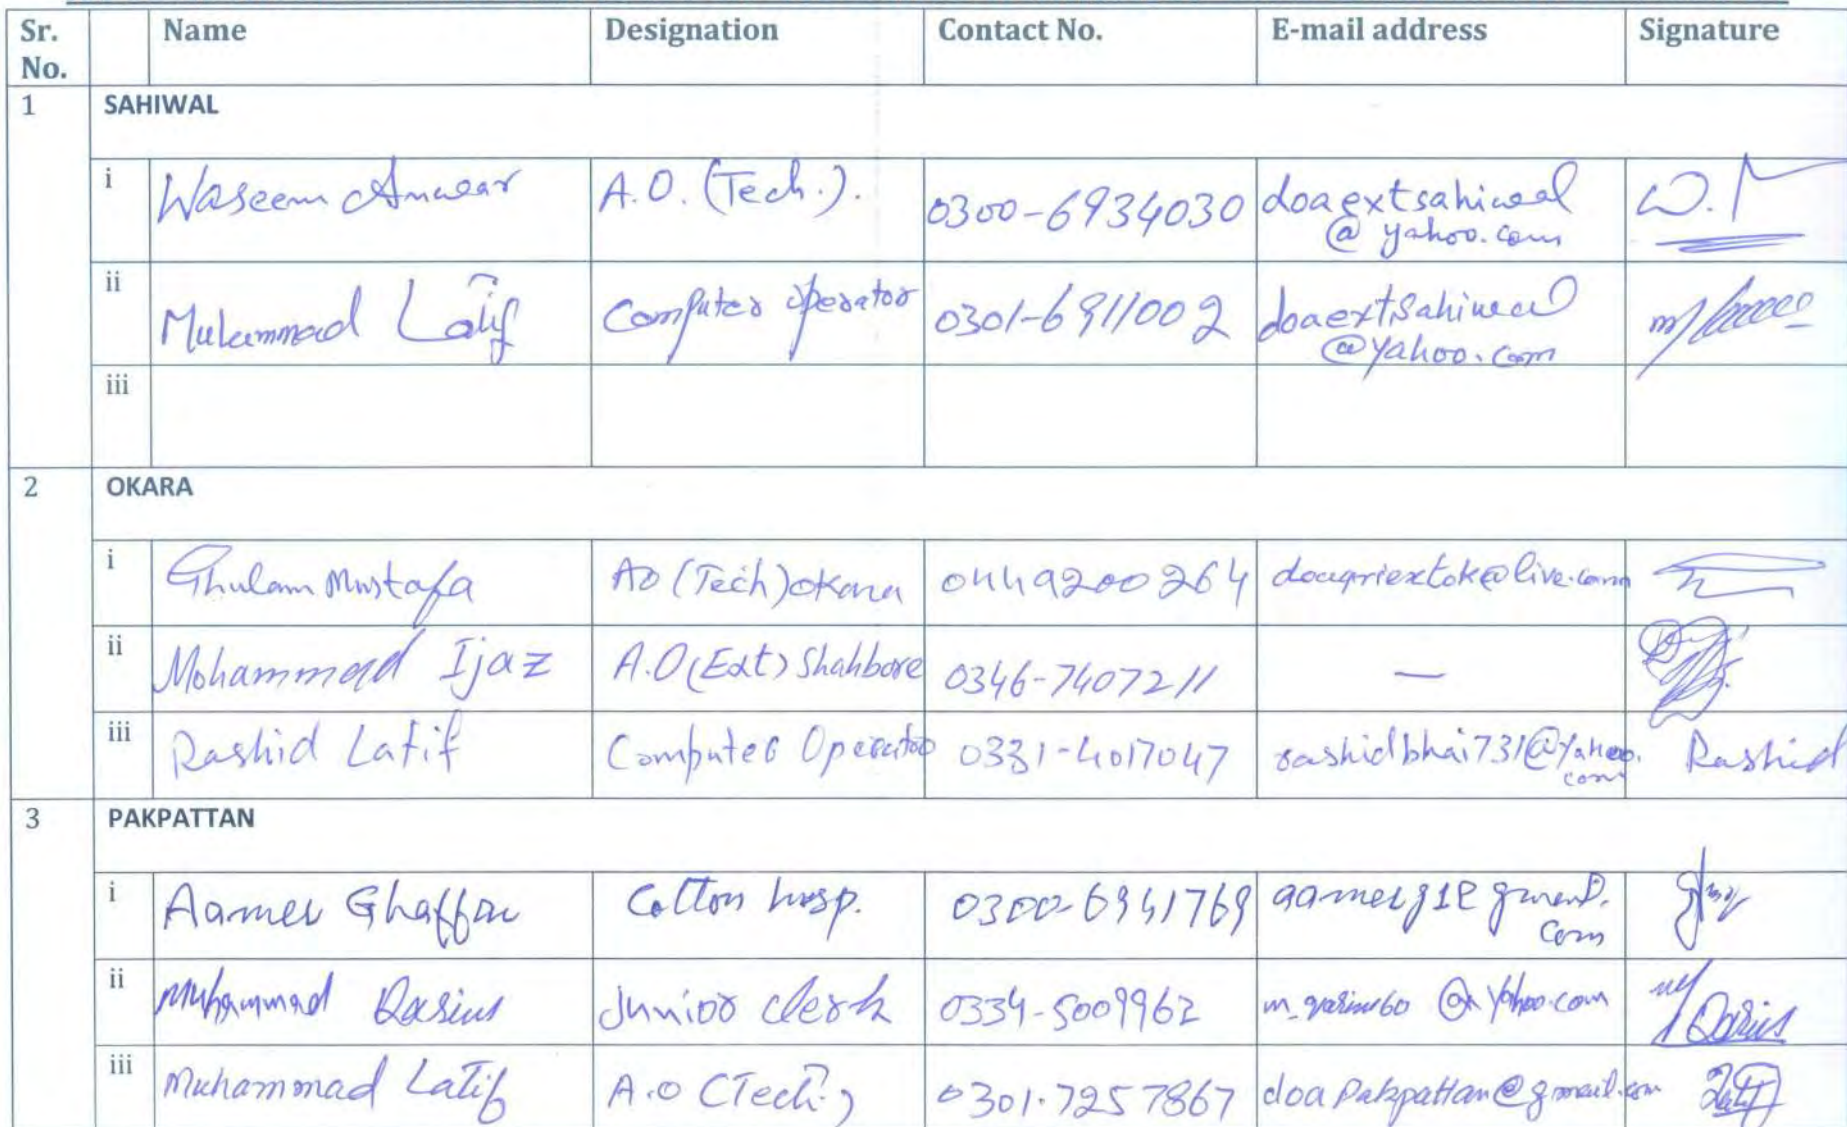 Sr. No. Name Designation Contact No. E-mail address Signature
1 SAHIWAL
i Waseem Anwar A.O. (Tech.). 0300-6934030 doaextsahiwal
@ yahoo.com
ii Muhammad Latif Computer operator 0301-6911002 doaextsahiwal
@yahoo.com
iii
2 OKARA
i Ghulam Mustafa AO (Tech) okara 0449200264 doagriextok@live.com
ii Mohammad Ijaz A.O (Ext) Shahbore 0346-7407211 —
iii Rashid Latif Computer Operator 0331-4017047 rashidbhai731@yahoo.
com
Rashid
3 PAKPATTAN
i Aamer Ghaffar Cotton Insp. 0300-6941769
com
ii Muhammad Qasim Junior clerk 0334-5009962 @yahoo.com
iii Muhammad Latif A.O (Tech.) 0301-7257867 doapakpattan@gmail.com